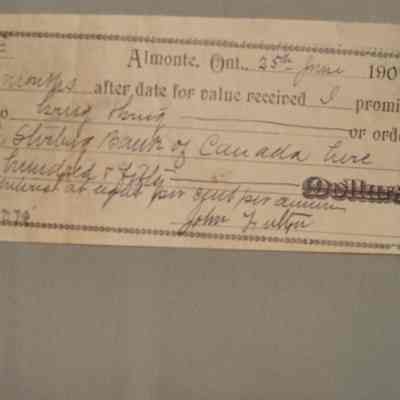 Almonte, Ont., 25th June 190
months after date for value received I promi
or orde
Bank of Canada here
hundred & Fifty Dollars
at eight per cent per annum
John Fulton